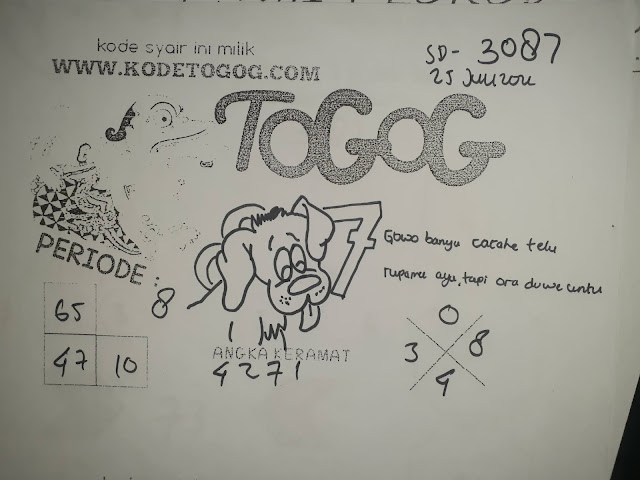 kode syair ini milik
WWW.KODETOGOG.COM
SD- 3087
25 Juli 2021
TOGOG
PERIODE :
7
Gowo banyu carane telu
rupamu ayu, tapi ora duwe untu
65
8
47 10
1
ANGKA KERAMAT
4271
0
3 8
4